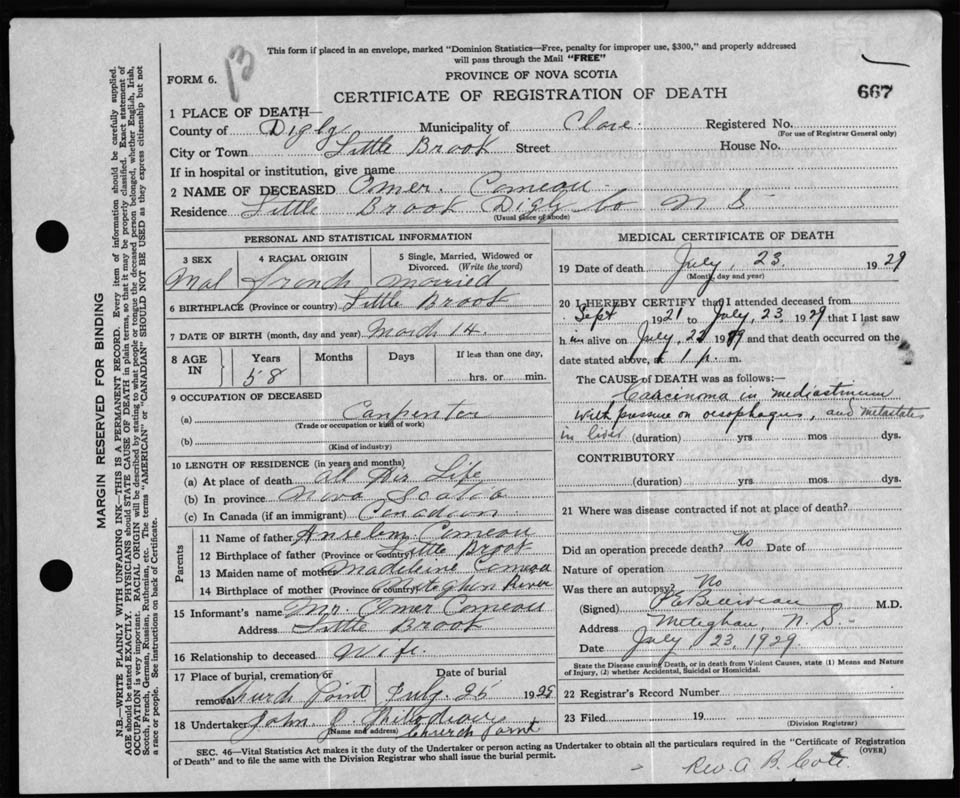 13
This form if placed in an envelope, marked "Dominion Statistics—Free, penalty for improper use, $300," and properly addressed
will pass through the Mail "FREE"
FORM 6.
PROVINCE OF NOVA SCOTIA
CERTIFICATE OF REGISTRATION OF DEATH
667
1 PLACE OF DEATH—
County of Digby Municipality of Clare Registered No.
(For use of Registrar General only)
City or Town Little Brook Street House No.
If in hospital or institution, give name
2 NAME OF DECEASED Omer. Comeau
Residence Little Brook Digby Co N S
(Usual place of abode)
MARGIN RESERVED FOR BINDING
N.B.—WRITE PLAINLY WITH UNFADING INK—THIS IS A PERMANENT RECORD. Every item of information should be carefully supplied.
AGE should be stated EXACTLY. PHYSICIANS should STATE CAUSE OF DEATH in plain terms, so that it may be properly classified. Exact statement of
OCCUPATION is very important. RACIAL ORIGIN will be described by stating to what people or tongue the deceased person belonged, whether English, Irish,
Scotch, French, German, Russian, Ruthenian, etc. The terms "AMERICAN" or "CANADIAN" SHOULD NOT BE USED as they express citizenship but not
a race or people. See instructions on back of Certificate.
PERSONAL AND STATISTICAL INFORMATION
3 SEX
4 RACIAL ORIGIN
5 Single, Married, Widowed or
Divorced. (Write the word)
Mal French married
6 BIRTHPLACE (Province or country) Little Brook
7 DATE OF BIRTH (month, day and year) March 14.
8 AGE IN
Years Months Days If less than one day,
58 hrs. or min.
9 OCCUPATION OF DECEASED
(a) Carpenter
(Trade or occupation or kind of work)
(b)
(Kind of industry)
10 LENGTH OF RESIDENCE (in years and months)
(a) At place of death all his Life
(b) In province Nova Scotia
(c) In Canada (if an immigrant) Canadian
Parents
11 Name of father Anselem Comeau
12 Birthplace of father (Province or country) Little Brook
13 Maiden name of mother Madeleine Comeau
14 Birthplace of mother (Province or country) Meteghan River
15 Informant's name Mr. Omer Comeau
Address Little Brook
16 Relationship to deceased Wife.
17 Place of burial, cremation or
removal Church Point
Date of burial
July 25 1929
18 Undertaker John
(Name and address) Church Point
MEDICAL CERTIFICATE OF DEATH
19 Date of death July, 23. 1929
(Month, day and year)
20 I HEREBY CERTIFY that I attended deceased from
Sept 1921 to July, 23, 1929 that I last saw
him alive on July, 23 1929 and that death occurred on the
date stated above, at 1 p. m.
The CAUSE of DEATH was as follows:—
Carcinoma in mediastinum
with pressure on oesophagus, and metastates
in liver (duration) yrs mos dys.
CONTRIBUTORY
(duration) yrs. mos. dys.
21 Where was disease contracted if not at place of death?
Did an operation precede death? No Date of
Nature of operation
Was there an autopsy? No
(Signed) M.D.
Address Meteghan, N. S.
Date July 23, 1929.
State the Disease causing Death, or in death from Violent Causes, state (1) Means and Nature
of Injury, (2) whether Accidental, Suicidal or Homicidal.
22 Registrar's Record Number
23 Filed 19
(Division Registrar)
SEC. 46—Vital Statistics Act makes it the duty of the Undertaker or person acting as Undertaker to obtain all the particulars required in the "Certificate of Registration
of Death" and to file the same with the Division Registrar who shall issue the burial permit.
(OVER)
Rev. A. B. Cote.